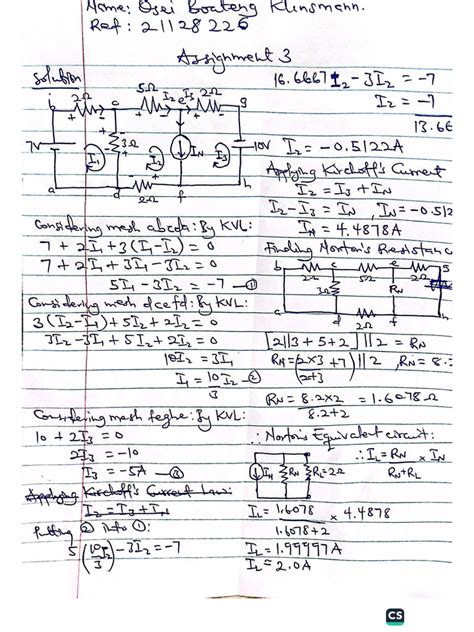 Name: Osei Boateng Klinsmann.
Ref: 21128226
Assignment 3
Solution
b 2Ω c 5Ω I2 e I3 2Ω g
7V I1 3Ω I2 IN I3 10V
a d 2Ω f h
Considering mesh abcda: By KVL:
7 + 2I1 + 3(I1-I2) = 0
7 + 2I1 + 3I1 - 3I2 = 0
5I1 - 3I2 = -7 ①
Considering mesh dcefd: By KVL:
3(I2-I1) + 5I2 + 2I2 = 0
3I2 - 3I1 + 5I2 + 2I2 = 0
10I2 = 3I1
I1 = 10/3 I2 ②
Considering mesh feghe: By KVL:
10 + 2I3 = 0
2I3 = -10
I3 = -5A ③
Applying Kirchoff's Current Law:
I2 = I3 + IN
Putting ② into ①:
5(10I2/3) - 3I2 = -7
16.6667I2 - 3I2 = -7
I2 = -7
13.66
I2 = -0.5122A
Applying Kirchoff's Current
I2 = I3 + IN
I2 - I3 = IN, IN = -0.512
IN = 4.4878A
Finding Norton's Resistanc
b c e g
2Ω 5Ω 2Ω
3Ω RN
a d 2Ω f h
[2||3 + 5 + 2]||2 = RN
RN = (2×3/2+3 + 7)||2, RN = 8.
RN = 8.2×2/8.2+2 = 1.6078Ω
∴ Norton's Equivalent circuit:
IN RN RL=2Ω
∴ IL = RN/RN+RL × IN
IL = 1.6078/1.6078+2 × 4.4878
IL = 1.99997A
IL = 2.0A
CS